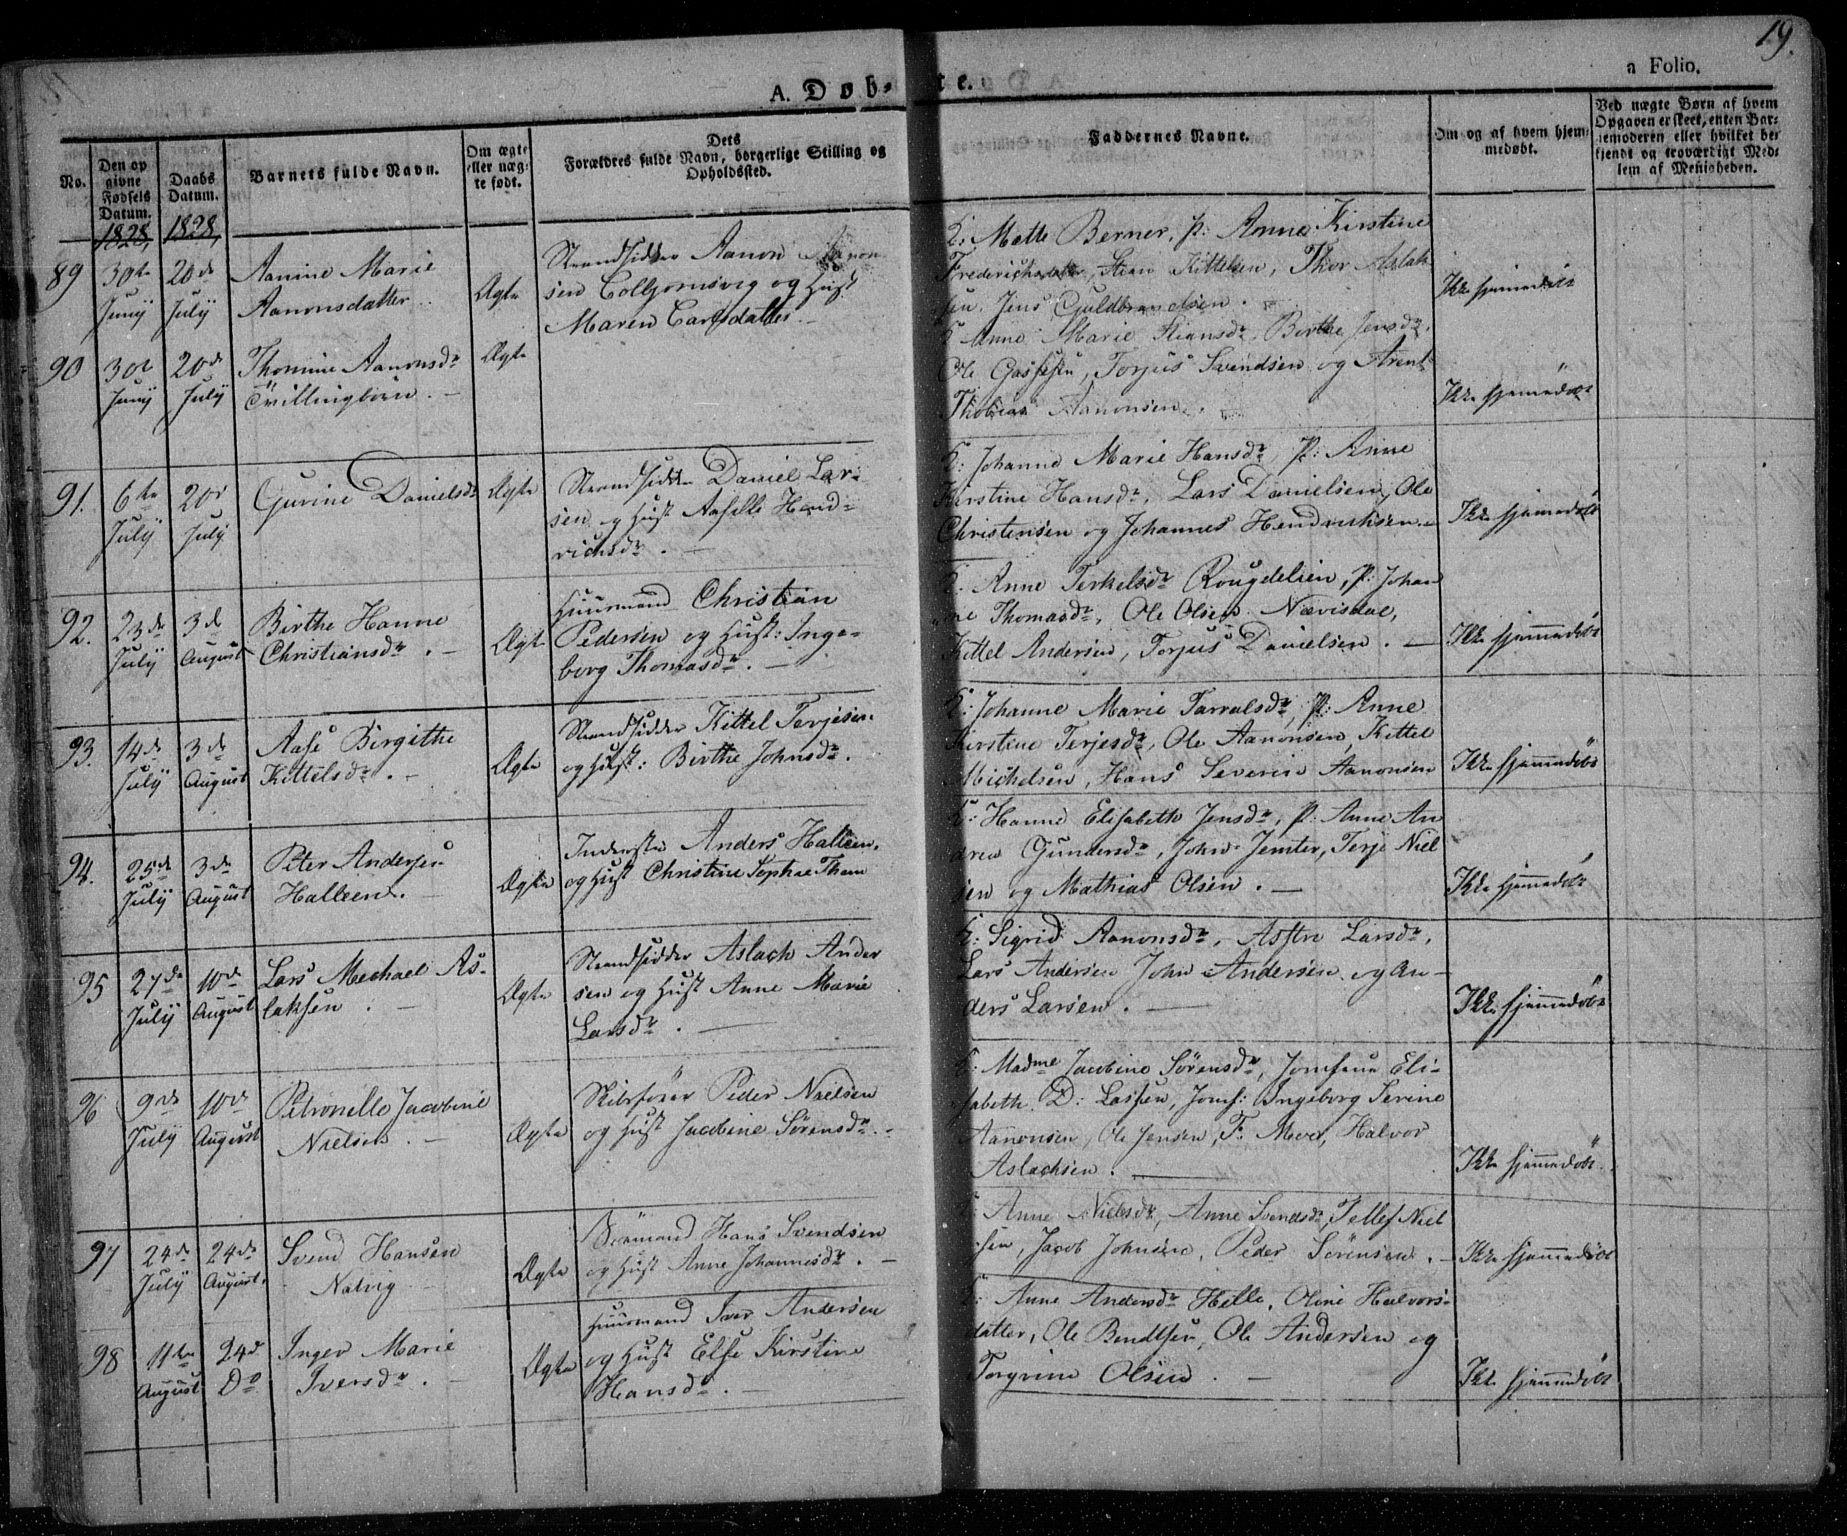 19.
a Folio.
A. Døb- te.
No.
Den op
givne
Fødsels
Datum.
1828,
Daabs
Datum.
1828,
Barnets fulde Navn.
Om ægte
eller næg-
te født.
Dets
Forældres fulde Navn, borgerlige Stilling og
Opholdssted.
Faddernes Navne.
Om og af hvem hjem-
medøbt.
Ved nægte Børn af hvem
Opgaven er skeet, enten Bar-
nemoderen eller hvilket be-
kjendt og troværdigt Med-
lem af Menigheden.
89
30te
Juny
20de
July
Aanine Marie
Aanonsdatter
Ægte
Strandsidder Aanon Aanon
sen Colbjornsvig og Hust
Maren Carlsdatter
K: Mette Berner, p: Anne Kirstine
Frederichsdatter, Stian Kittelsen, Thor Aslak
sen, Jens Guldbrandsen.
Ikke hjemmedøbt
90
30te
Juny
20de
July
Thomine Aanonsdr
Tvillingbörn. -
Ægte
K Anne Marie Stiansdr, Birthe Jensdr,
Ole Gassesen, Torjus Svendsen og Arent
Thobias Aanonsen.
Ikke hjemmedøbt
91.
6te
July
20d
July
Gurine Danielsdr
Ægte
Strandsidder Daniel Lar-
sen og Hust Aaselle Hend-
richsdr. -
K: Johanne Marie Hansdr, p: Anne
Kirstine Hansdr, Lars Danielsen, Ole
Christensen og Johannes Hendrichsen. -
Ikke hjemmedøbt
92.
23de
July
3de
August
Birthe Hanne
Christiansdr. -
Ægte
Huusmand Christian
Pedersen og Hust: Inge-
borg Thomasdr. -
K. Anne Terkelsdr Rougdelien, p: Johan
ne Thomasdr, Ole Olsen Nævisdal,
Kittel Andersen, Torjus Danielsen. -
Ikke hjemmedøbt
93.
14de
July
3de
August
Aase Birgithe
Kittelsdr. -
Ægte
Strandsidder Kittel Terjesen
og Hust: Birthe Johnsdr.
K: Johanne Marie Tarralsdr, p: Anne
Kirstine Terjesdr, Ole Aanonsen, Kittel
Michelsen, Hans Severin Aanonsen
Ikke hjemmedøbt
94.
25de
July
3de
August
Peter Andersen
Halleen. -
Ægte
Inderste Anders Halleen,
og Hust Christine Sophie Thom
K: Hanne Elisabeth Jensdr, p: Anne An
drea Gundersdr, John Jemter, Terje Niel
sen og Mathias Olsen. -
Ikke hjemmedøbt
95
27de
July
10de
August
Lars Mechael As-
laksen. -
Ægte
Strandsidder Aslach Ander
sen og Hust Anne Marie
Larsdr. -
K: Sigrid Aanonsdr, Astre Larsdr,
Lars Andersen John Andersen og An-
ders Larsen. -
Ikke hjemmedøbt
96
9de
July
10de
August
Petronelle Jacobine
Nielsen. -
Ægte
Skibsfører Peder Nielsen
og Hust Jacobine Sørensdr. -
K: Madme Jacobine Sørensdr, Jomfrue Eli-
sabeth D: Lassen, Jomf: Ingeborg Serine
Aanonsen, Ole Jensen, F: Moer, Halvor
Aslachsen. -
Ikke hjemmedøbt.
97
24de
July
24de
August.
Svend Hansen
Natvig
Ægte
Sømand Hans Svendsen
og Hust Anne Johannisdr. -
K: Anne Nielsdr, Anne Svendsdr, Tellef Niel
sen, Jacob Johnsen, Peder Sørensen. -
Ikke hjemmedøbt
98
11te
August
24d
Do
Inger Marie
Iversdr. -
Ægte
Huusmand Iver Andersen
og Hust Else Kirstine
Hansdr. -
K: Anne Andersdr Helle, Oline Halvors-
datter, Ole Bendtsen, Ole Andersen og
Torgrim Olsen. -
Ikke hjemmedøbt